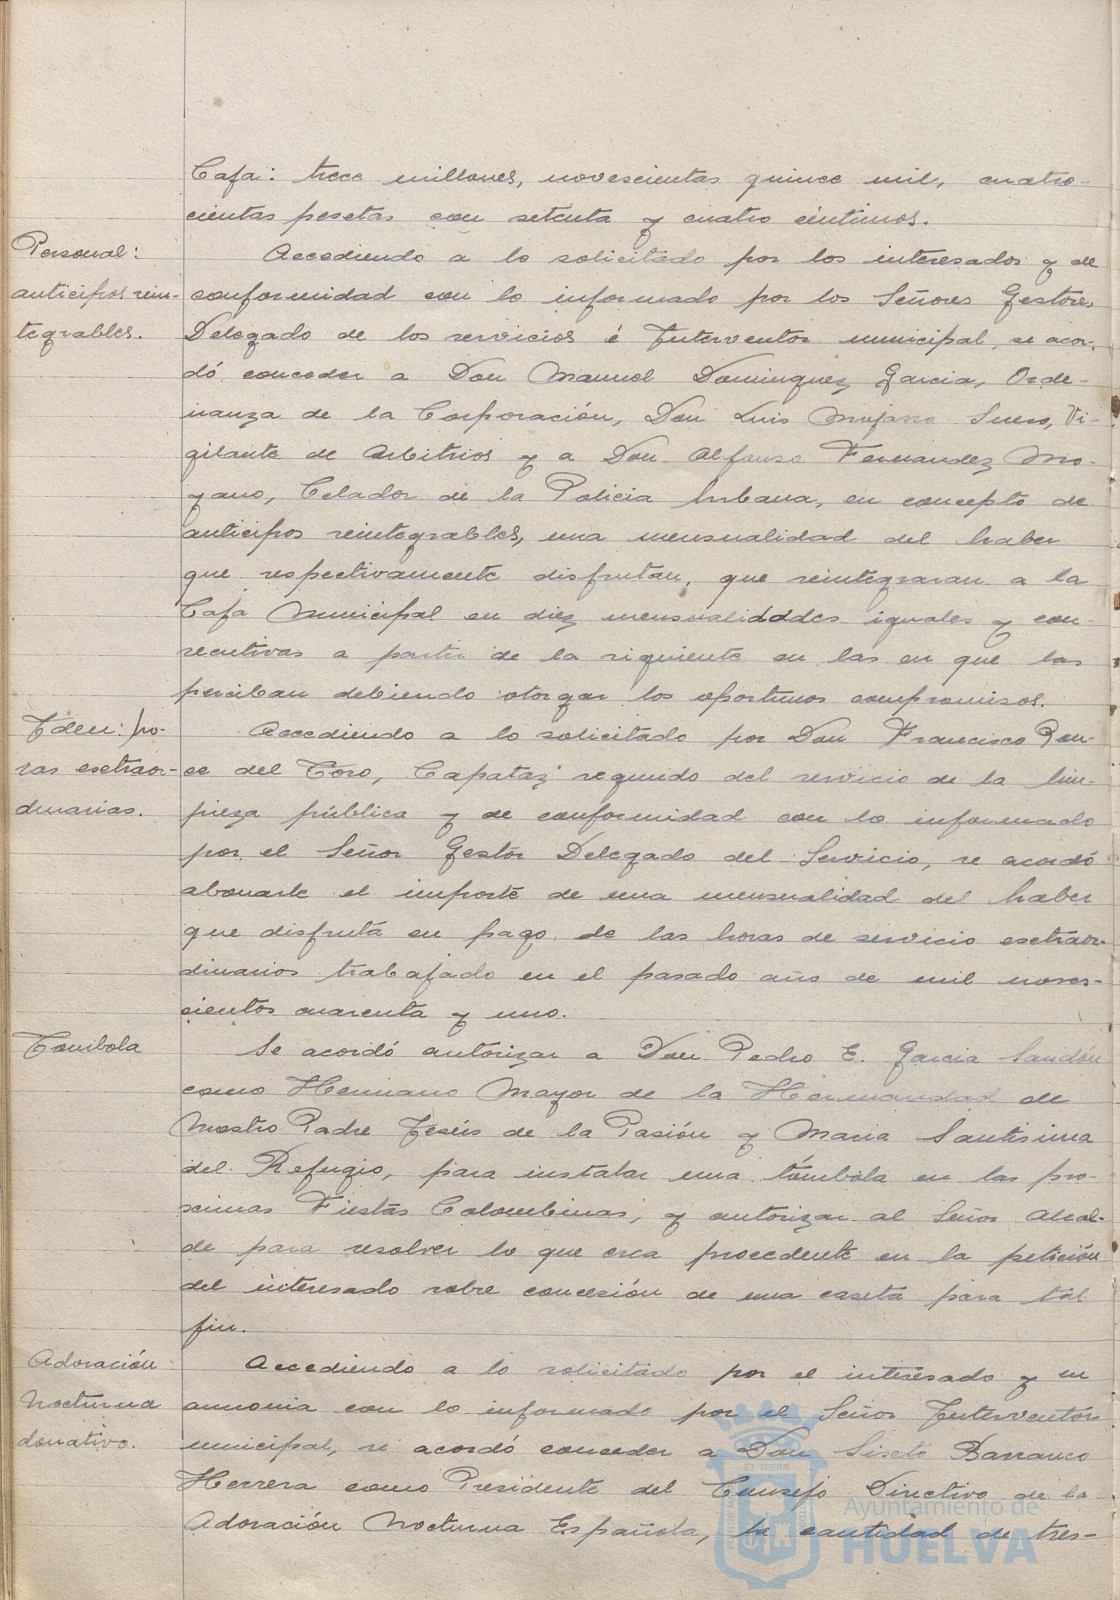 Caja: trece millones, novescientas quince mil, cuatro-
cientas pesetas con setenta y cuatro céntimos.
Personal:
anticipos rein-
tegrables.
Accediendo a lo solicitado por los interesados y de
conformidad con lo informado por los Señores Gestores
Delegado de los servicios é Interventor municipal, se acor-
dó conceder a Don Manuel Dominguez Garcia, Orde-
nanza de la Corporación, Don Luis Mojarro Suero, Vi-
gilante de Arbitrios y a Don Alfonso Fernandez Mo-
yano, Celador de la Policia Urbana, en concepto de
anticipos reintegrables, una mensualidad del haber
que respectivamente disfrutan, que reintegraran a la
Caja Municipal en diez mensualidades iguales y con-
secutivas a partir de la siguiente en las en que las
perciban debiendo otorgar los oportunos compromisos.
Idem: ho-
ras esctraor-
dinarias.
Accediendo a lo solicitado por Don Francisco Pon-
ce del Toro, Capataz segundo del servicio de la lim-
pieza pública y de conformidad con lo informado
por el Señor Gestor Delegado del Servicio, se acordó
abonarle el importe de una mensualidad del haber
que disfruta en pago de las horas de servicio esctraor-
dinarios trabajado en el pasado año de mil noves-
cientos cuarenta y uno.
Tombola
Se acordó autorizar a Don Pedro E. Garcia Sandón
como Hermano Mayor de la Hermandad de
Nuestro Padre Jesús de la Pasión y Maria Santisima
del Refugio, para instalar una tómbola en las pro-
scimas Fiestas Colombinas, y autorizar al Señor Alcal-
de para resolver lo que crea procedente en la petición
del interesado sobre concesión de una caseta para tal
fin.
Adoración
Nocturna
donativo.
Accediendo a lo solicitado por el interesado y en
armonia con lo informado por el Señor Interventor
municipal, se acordó conceder a Don Siscto Barranco
Herrera como Presidente del Consejo Directivo de la
Adoración Nocturna Española, la cantidad de tres-
Ayuntamiento de
HUELVA